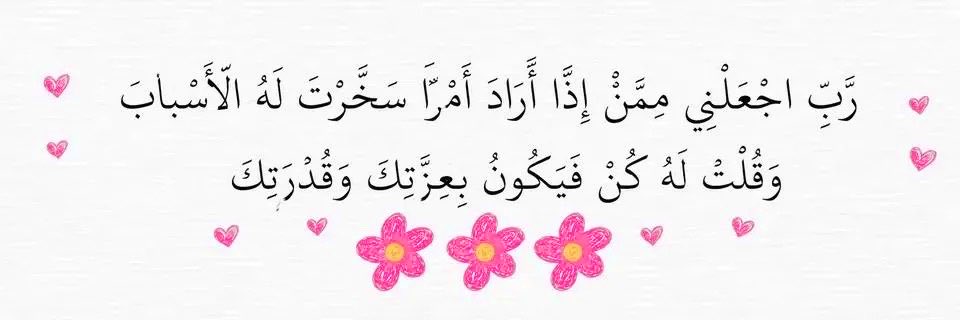 رَّبِّ اجْعَلْنِي مِمَّنْ إِذَّا أََرَادَ أَمْرََّا سَخَّرْتَ لَهُ الّأَسْبابَ
وَقُلْتْ لَهُ كُنْ فَيَكُونُ بِعِزَّتِكَ وَقُدْرَتِكَ